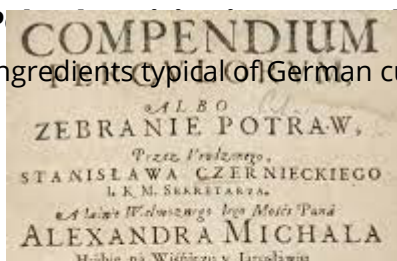 COMPENDIUM
ngredients typical of German cu
ALBO
ZEBRANIE POTRAW,
Przez Urodzonego,
STANISŁAWA CZERNIECKIEGO
I. K. M. SEKRETARZA,
Wielmożnego Jego Mości Pana
ALEXANDRA MICHALA